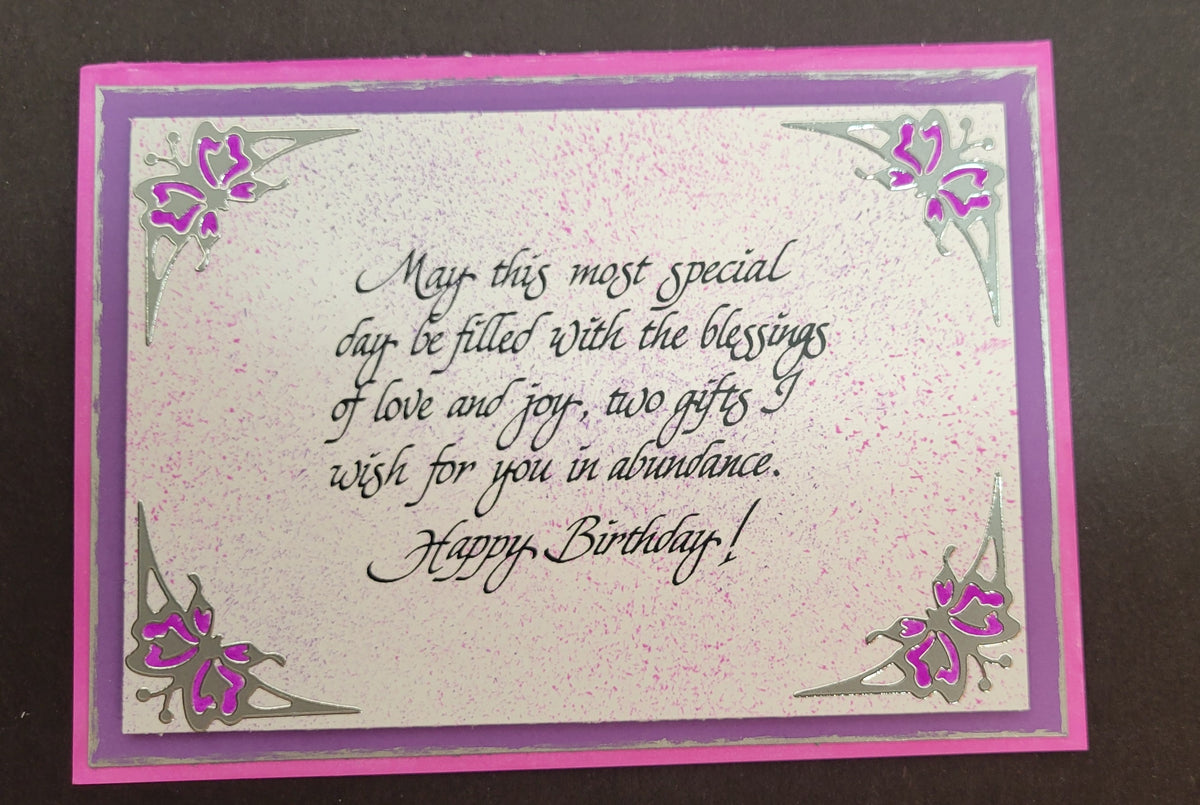 May this most special
day be filled with the blessings
of love and joy, two gifts I
wish for you in abundance.
Happy Birthday!